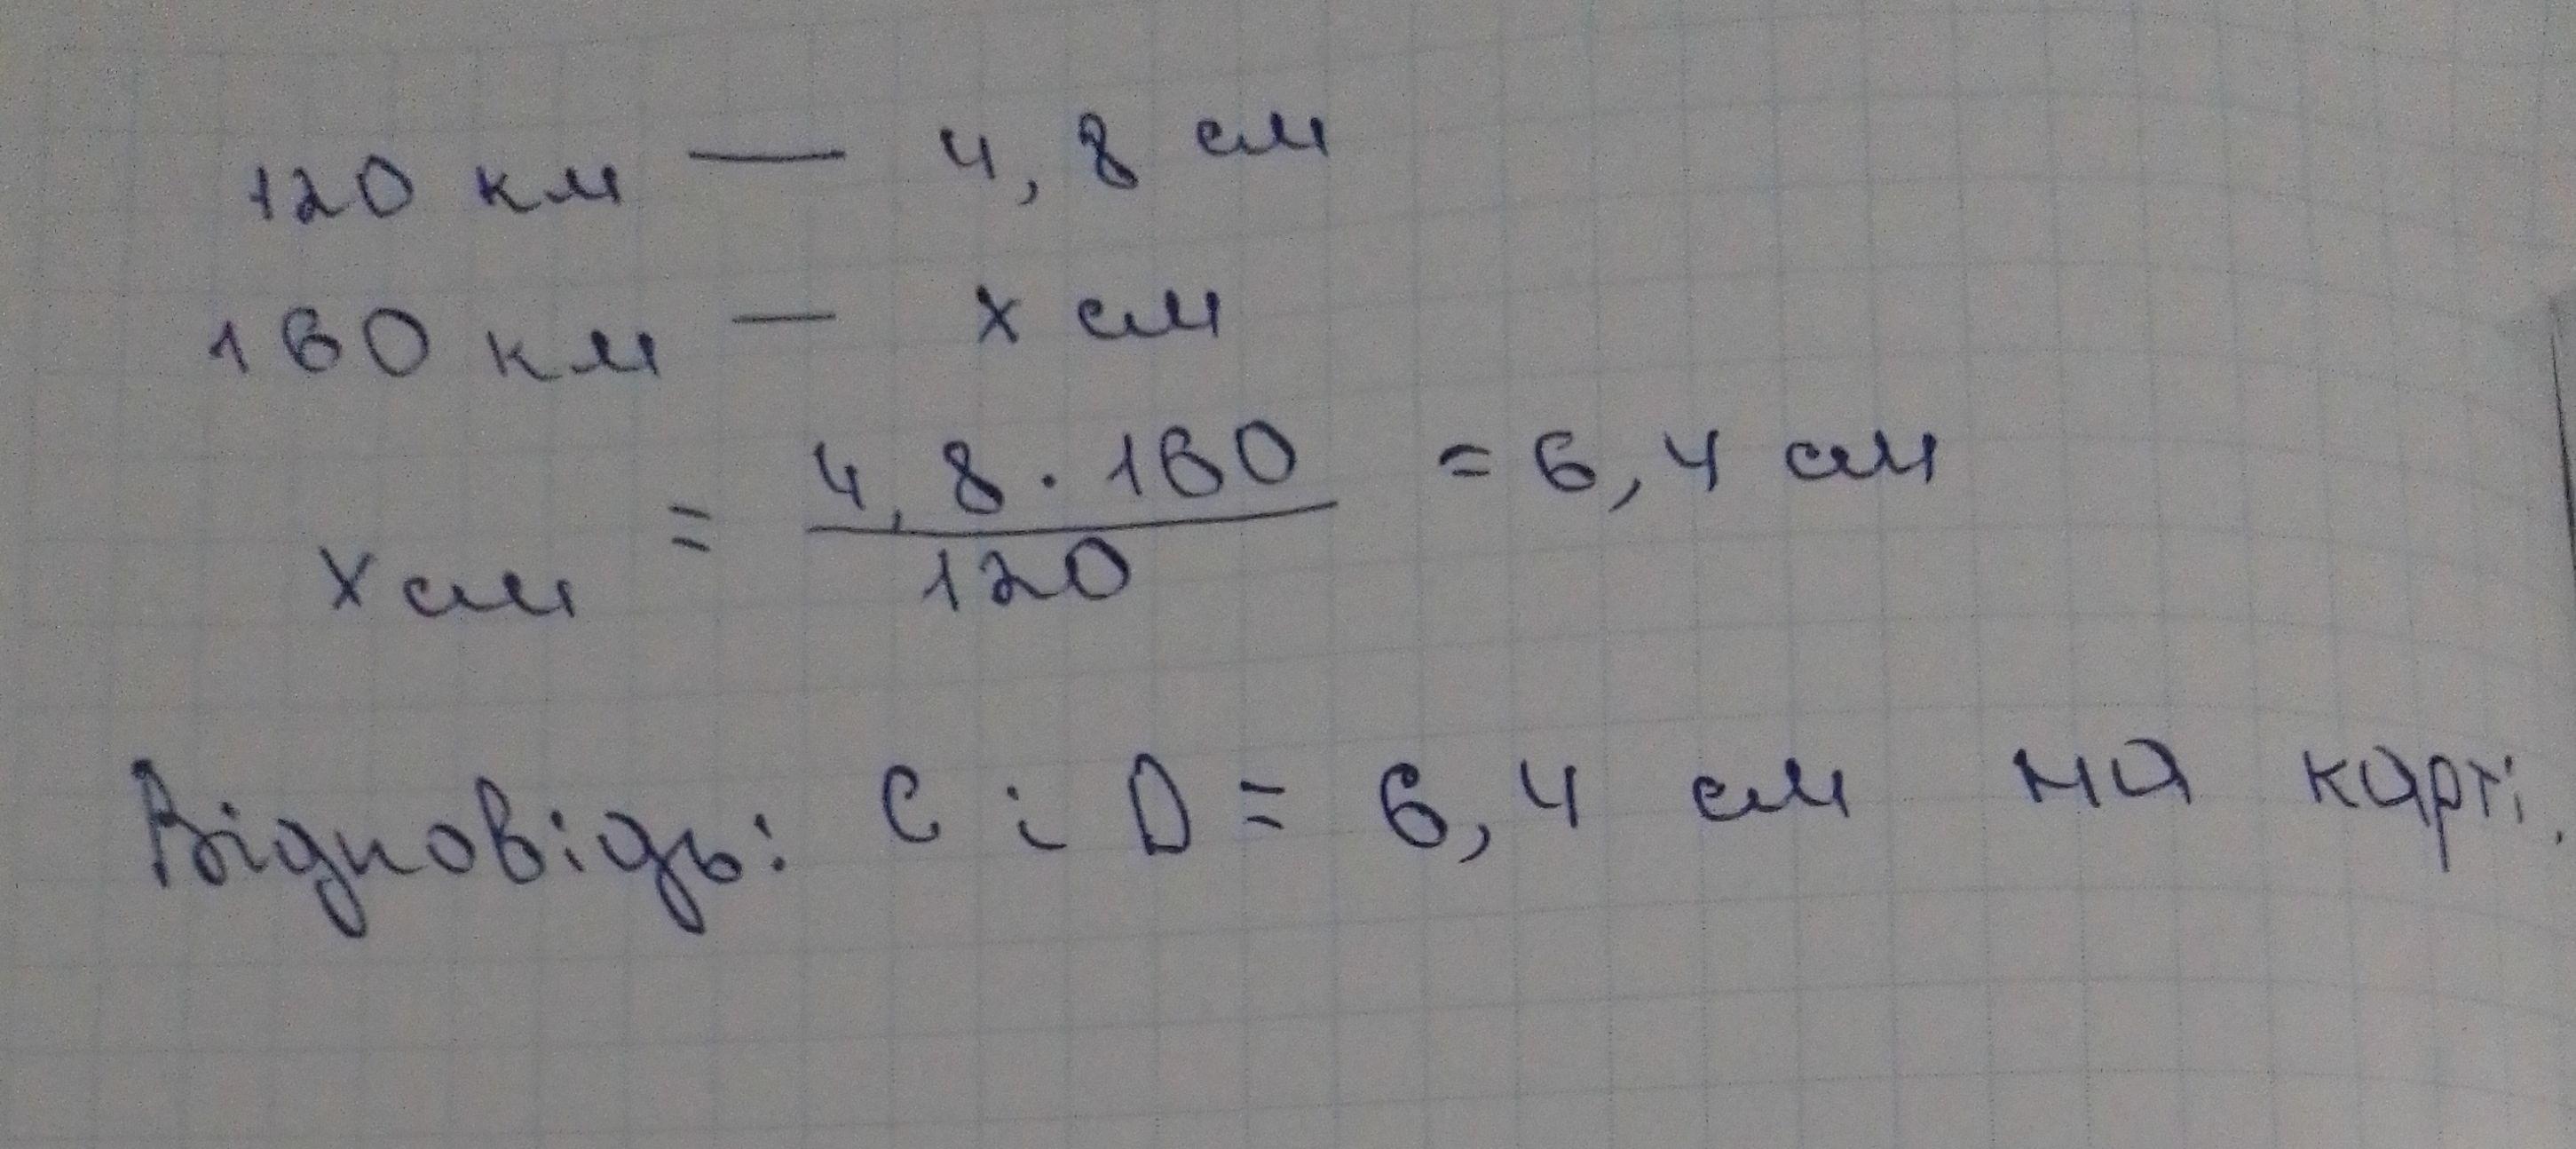 120 км — 4,8 см
160 км — x см
x см = 4,8 · 160 / 120 = 6,4 см
Відповідь: C і D = 6,4 см на карті.